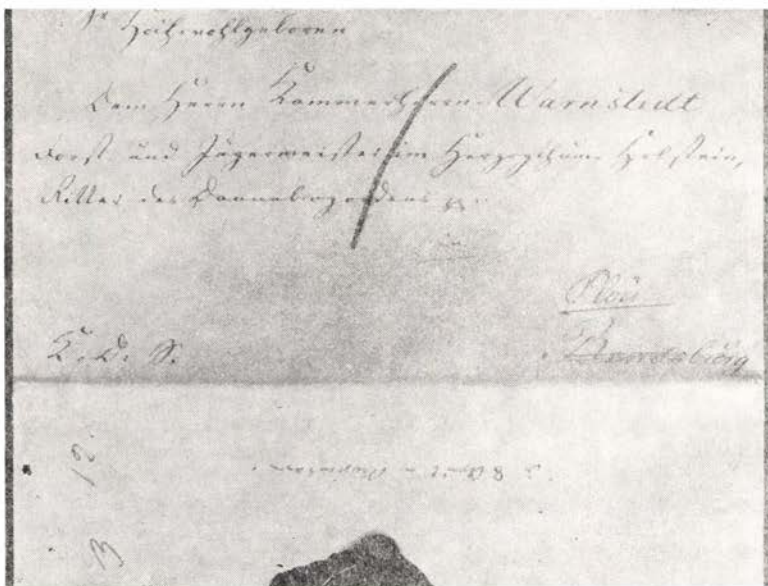 Hochwohlgeboren
Dem Herrn Kammerherrn Warnstedt
Forst und Jägermeister im Herzogthum Holstein,
Ritter des Dannebrogordens
in
Ploen
K. D. S.
12.
3